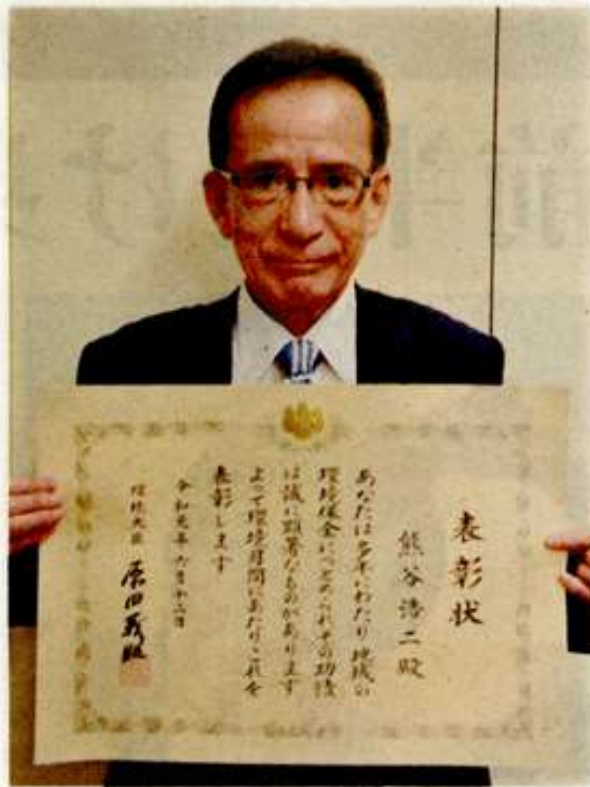 表彰状
熊谷浩二殿
あなたは多年にわたり地域の
環境保全につとめられその功績
は誠に顕著なものがあります
よって環境月間にあたりこれを
表彰します
令和元年六月十二日
環境大臣 原田義昭